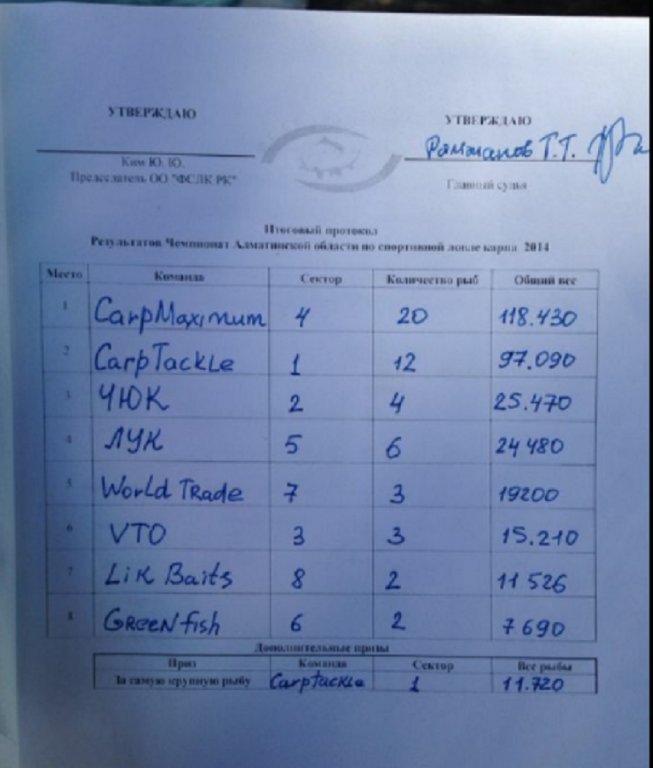 УТВЕРЖДАЮ УТВЕРЖДАЮ
Рамжанов Т.Т.
Ким Ю. Ю.
Председатель ОО "ФСЛК РК" Главный судья
Итоговый протокол
Результатов Чемпионат Алматинской области по спортивной ловле карпа 2014
Место Команда Сектор Количество рыб Общий вес
1 CarpMaximum 4 20 118.430
2 CarpTackle 1 12 97.090
3 ЧЮК 2 4 25.470
4 ЛУК 5 6 24 480
5 World Trade 7 3 19200
6 VTO 3 3 15.210
7 Lik Baits 8 2 11 526
8 Greenfish 6 2 7 690
Дополнительные призы
Приз Команда Сектор Вес рыбы
За самую крупную рыбу Carptackle 1 11.720